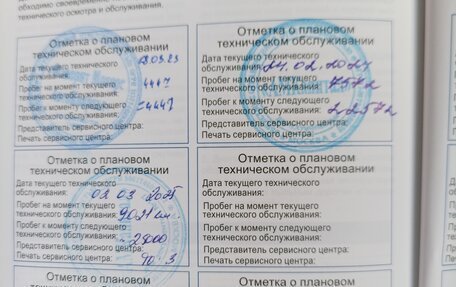 обходимо своевременно
технического осмотра и обслуживания.
Отметка о плановом
техническом обслуживании
Дата текущего технического
обслуживания:
Пробег на момент текущего
технического обслуживания: 4447
Пробег к моменту следующего
технического обслуживания:
Представитель сервисного центра:
Печать сервисного центра:
Отметка о плановом
техническом обслуживании
Дата текущего технического
обслуживания: 24.02.2024
Пробег на момент текущего
технического обслуживания: 7572
Пробег к моменту следующего
технического обслуживания: 22572
Представитель сервисного центра:
Печать сервисного центра:
МОСКВА
Отметка о плановом
техническом обслуживании
Дата текущего технического
обслуживания: 02 03 2025
Пробег на момент текущего
технического обслуживания:
Пробег к моменту следующего
технического обслуживания:
Представитель сервисного центра:
Печать сервисного центра:
Отметка о плановом
техническом обслуживании
Дата текущего технического
обслуживания:
Пробег на момент текущего
технического обслуживания:
Пробег к моменту следующего
технического обслуживания:
Представитель сервисного центра:
Печать сервисного центра:
Отметка о плановом
Отметка о плановом